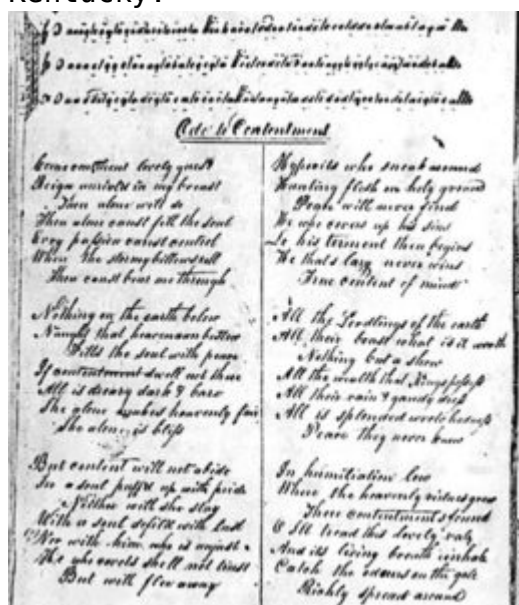 Kentucky.
Ode to Contentment
Come content lovely guest
Reign unrivold in my breast
Thou alone wilt do
Thou alone canst fill the soul
Evry passion canst control
When the stormy billows roll
Thou canst bear me through
Nothing on the earth below
Naught that heaven can bestow
Fills the soul with peace
If contentment dwell not there
All is dreary dark & bare
She alone makes heavenly fair
She alone is bliss
But content will not abide
In a soul puff'd up with pride
Neither with she stay
With a soul defil'd with lust
Nor with him who is unjust
He who covets shall not
But with flee away
Hypocrits who sneak around
Wanting flesh on holy ground
Peace will never find
He who covers up his sins
Lo his torment then begins
He that's lazy never wins
True content of mind
All the Lordlings of the earth
All their boast what is it worth
Nothing but a show
All the wealth that Kings possess
All their vain & gaudy dress
All is splended
Peace they never knew
In humiliation low
Where the heavenly virtues grow
There contentment's found
O I'll tread this lovely vale
And its living breath inhale
Catch the odours on the gale
Richly spread around